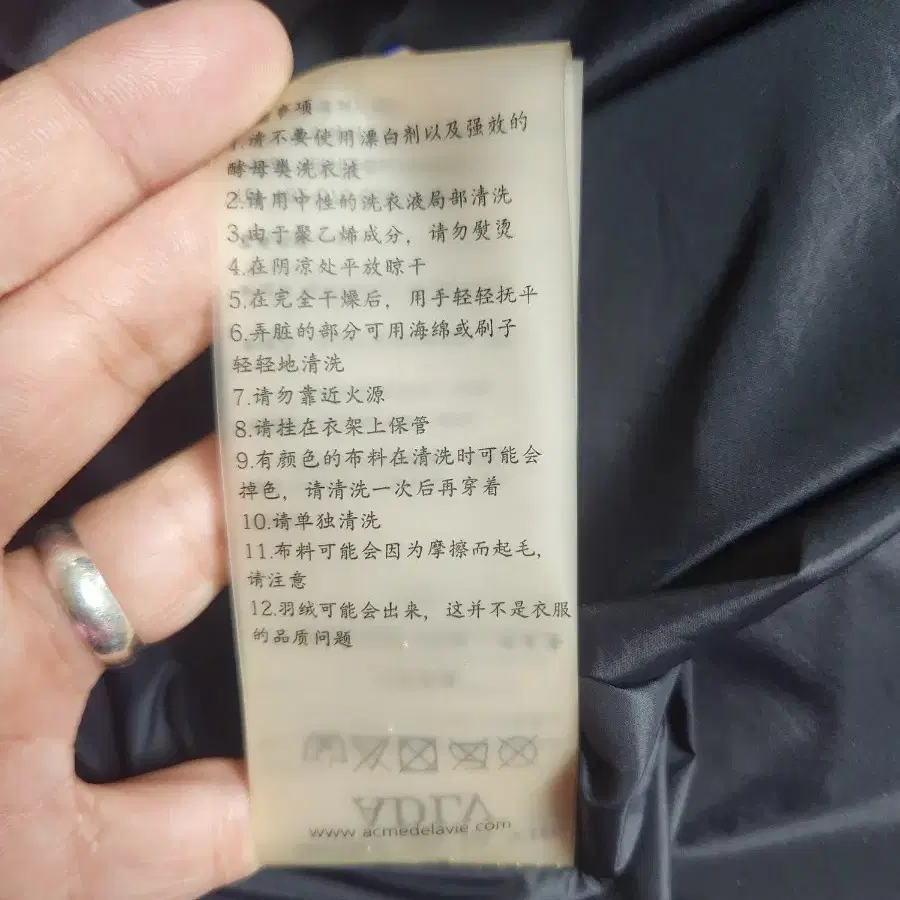 事项
1.请不要使用漂白剂以及强效的
酵母类洗衣液
2.请用中性的洗衣液局部清洗
3.由于聚乙烯成分，请勿熨烫
4.在阴凉处平放晾干
5.在完全干燥后，用手轻轻抚平
6.弄脏的部分可用海绵或刷子
轻轻地清洗
7.请勿靠近火源
8.请挂在衣架上保管
9.有颜色的布料在清洗时可能会
掉色，请清洗一次后再穿着
10.请单独清洗
11.布料可能会因为摩擦而起毛，
请注意
12.羽绒可能会出来，这并不是衣服
的品质问题
ADLV
www.acmedelavie.com